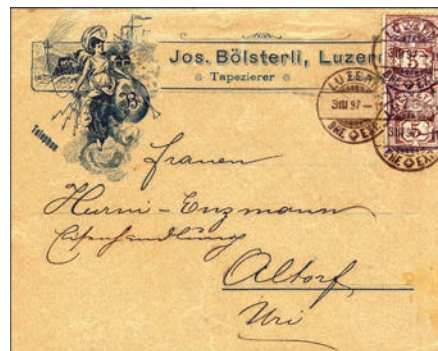 Jos. Bölsterli, Luzern
Tapezierer
Telephon
LUZERN
3 III 97
BRF. EXP.
5
5
Frauen
Hurni-Enzmann
Eisenhandlung
Altorf,
Uri